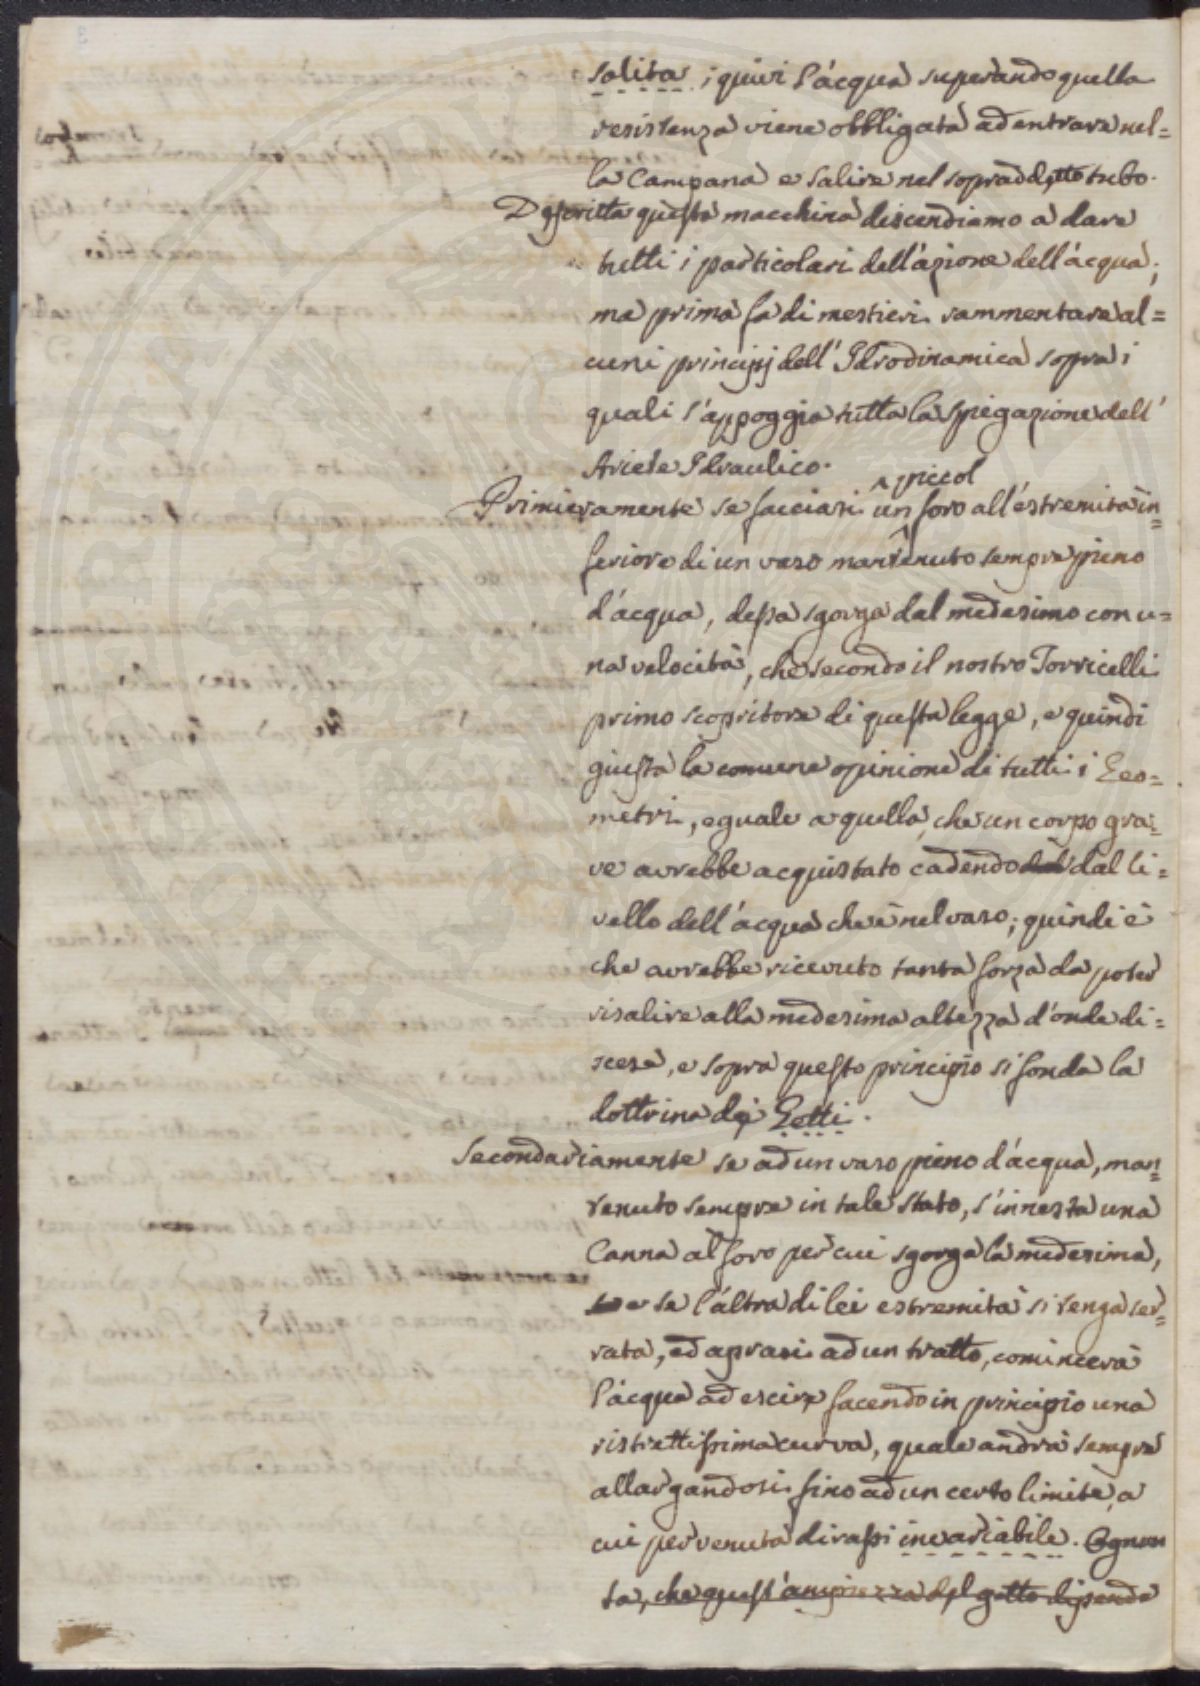 salita; quivi l'acqua superando quella
resistenza viene obbligata ad entrare nel=
la Campana e salire nel sopraddetto tubo.
Descritta questa macchina discendiamo a dare
tutti i particolari dell'azione dell'acqua;
ma prima fa di mestieri rammentare al=
cuni principj dell'Idrodinamica sopra i
quali s'appoggia tutta la spiegazione dell'
Ariete Idraulico.
piccol
Primieramente se facciasi un foro all'estremità in=
feriore di un vaso mantenuto sempre pieno
d'acqua, dessa sgorga dal medesimo con u=
na velocità, che secondo il nostro Torricelli
primo scopritore di questa legge, e quindi
giusta la comune opinione di tutti i Geo=
metri, eguale a quella, che un corpo gra=
ve avrebbe acquistato cadendo dal dal li=
vello dell'acqua che è nel vaso; quindi è
che avrebbe ricevuto tanta forza da poter
risalire alla medesima altezza d'onde di=
scese, e sopra questo principio si fonda la
dottrina dei Getti.
Secondariamente se ad un vaso pieno d'acqua, man=
tenuto sempre in tale stato, s'innesta una
Canna al foro per cui sgorga la medesima,
e se l'altra di lei estremità si tenga ser=
rata, ed aprasi ad un tratto, comincerà
l'acqua ad escire facendo in principio una
ristrettissima curva, quale andrà sempre
allargandosi fino ad un certo limite, a
cui pervenuta dirassi invariabile. Ognun
sa, che quest'ampiezza del getto dipende